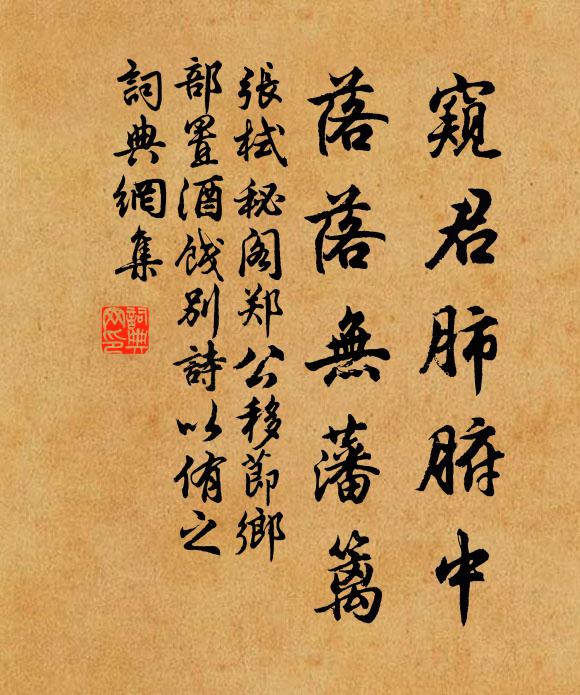 窺君肺腑中
落落無藩籬
張栻秘阁郑公移節鄉
部置酒餞别詩以侑之
詞典網集
詞典網印